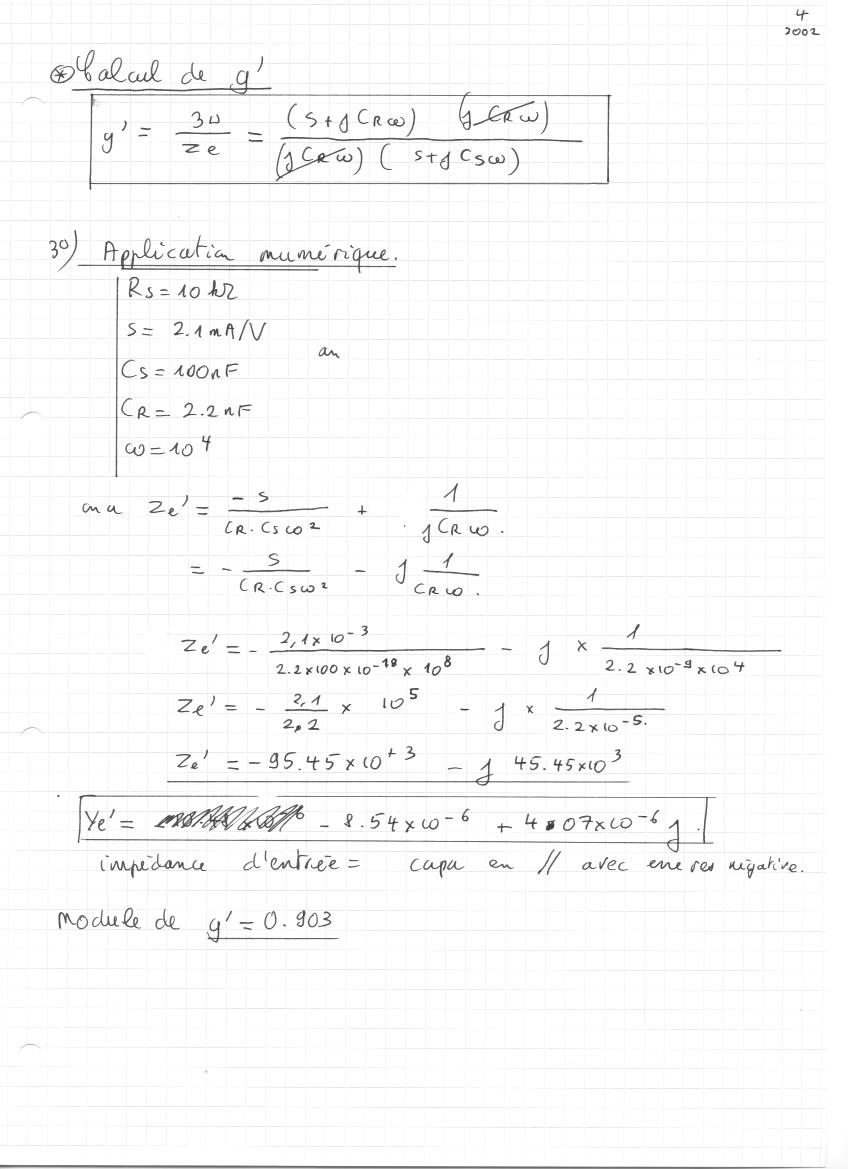 4
2002
⊛ Calcul de g'
g' = 3ω / Ze = (S + j CRω) (j CRω) / (j CRω) (S + j CSω)
3°) Application numérique.
RS = 10 kΩ
S = 2.1 mA/V
an
CS = 100 nF
CR = 2.2 nF
ω = 10^4
on a Ze' = - S / CR . CS ω² + 1 / j CR ω .
= - S / CR . CS ω² - j 1 / CR ω .
Ze' = - 2,1 × 10^-3 / 2.2 × 100 × 10^-18 × 10^8 - j × 1 / 2.2 × 10^-9 × 10^4
Ze' = - 2,1 / 2,2 × 10^5 - j × 1 / 2.2 × 10^-5 .
Ze' = - 95.45 × 10^+3 - j 45.45 × 10^3
Ye' = - 8.54 × 10^-6 + 4.07 × 10^-6 j .
impédance d'entrée = capa en // avec une res négative.
Module de g' = 0.903